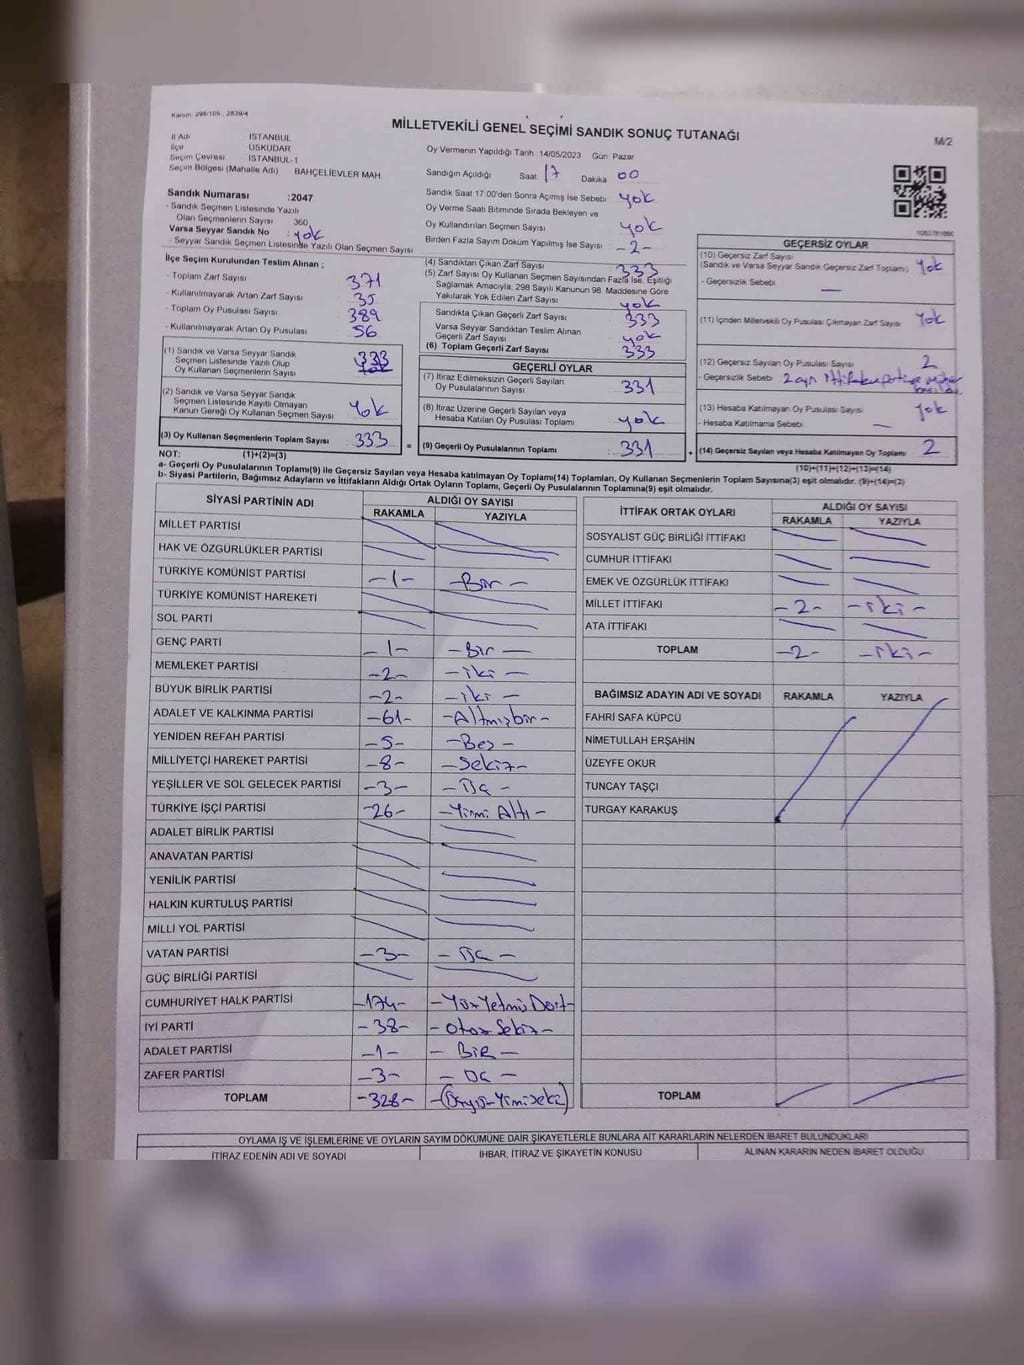 Kanun: 298/105 , 2839/4
MİLLETVEKİLİ GENEL SEÇİMİ SANDIK SONUÇ TUTANAĞI
M/2
İl Adı İSTANBUL
İlçe ÜSKÜDAR
Seçim Çevresi İSTANBUL-1
Seçim Bölgesi (Mahalle Adı) BAHÇELİEVLER MAH
Oy Vermenin Yapıldığı Tarih 14/05/2023 Gün Pazar
Sandığın Açıldığı Saat 17 Dakika 00
Sandık Numarası :2047
- Sandık Seçmen Listesinde Yazılı
Olan Seçmenlerin Sayısı 360
Varsa Seyyar Sandık No : yok
- Seyyar Sandık Seçmen Listesinde Yazılı Olan Seçmen Sayısı
Sandık Saat 17.00'den Sonra Açımış İse Sebebi yok
Oy Verme Saati Bitiminde Sırada Bekleyen ve
Oy Kullandırılan Seçmen Sayısı yok
Birden Fazla Sayım Döküm Yapılmış İse Sayısı -2-
İlçe Seçim Kurulundan Teslim Alınan ;
- Toplam Zarf Sayısı 371
- Kullanılmayarak Artan Zarf Sayısı 35
- Toplam Oy Pusulası Sayısı 389
- Kullanılmayarak Artan Oy Pusulası 56
(1) Sandık ve Varsa Seyyar Sandık
Seçmen Listesinde Yazılı Olup
Oy Kullanan Seçmenlerin Sayısı 333
(2) Sandık ve Varsa Seyyar Sandık
Seçmen Listesinde Kayıtlı Olmayan
Kanun Gereği Oy Kullanan Seçmen Sayısı Yok
(3) Oy Kullanan Seçmenlerin Toplam Sayısı 333 =
(4) Sandıktan Çıkan Zarf Sayısı 333
(5) Zarf Sayısı Oy Kullanan Seçmen Sayısından Fazla İse, Eşitliği
Sağlamak Amacıyla, 298 Sayılı Kanunun 98. Maddesine Göre
Yakılarak Yok Edilen Zarf Sayısı yok
Sandıkta Çıkan Geçerli Zarf Sayısı 333
Varsa Seyyar Sandıktan Teslim Alınan
Geçerli Zarf Sayısı yok
(6) Toplam Geçerli Zarf Sayısı 333
GEÇERLİ OYLAR
(7) İtiraz Edilmeksizin Geçerli Sayılan
Oy Pusulalarının Sayısı 331
(8) İtiraz Üzerine Geçerli Sayılan veya
Hesaba Katılan Oy Pusulası Toplamı yok
(9) Geçerli Oy Pusulalarının Toplamı : 331 +
GEÇERSİZ OYLAR
(10) Geçersiz Zarf Sayısı
(Sandık ve Varsa Seyyar Sandık Geçersiz Zarf Toplamı) Yok
- Geçersizlik Sebebi —
(11) İçinden Milletvekili Oy Pusulası Çıkmayan Zarf Sayısı Yok
(12) Geçersiz Sayılan Oy Pusulası Sayısı 2
- Geçersizlik Sebebi 2 ayrı
(13) Hesaba Katılmayan Oy Pusulası Sayısı yok
- Hesaba Katılmama Sebebi —
(14) Geçersiz Sayılan veya Hesaba Katılmayan Oy Toplamı 2
NOT: (1)+(2)=(3)
(10)+(11)+(12)+(13)=(14)
a- Geçerli Oy Pusulalarının Toplamı(9) ile Geçersiz Sayılan veya Hesaba katılmayan Oy Toplamı(14) Toplamları, Oy Kullanan Seçmenlerin Toplam Sayısına(3) eşit olmalıdır. (9)+(14)=(3)
b- Siyasi Partilerin, Bağımsız Adayların ve İttifakların Aldığı Ortak Oyların Toplamı, Geçerli Oy Pusulalarının Toplamına(9) eşit olmalıdır.
SİYASİ PARTİNİN ADI ALDIĞI OY SAYISI
RAKAMLA YAZIYLA
MİLLET PARTİSİ
HAK VE ÖZGÜRLÜKLER PARTİSİ
TÜRKİYE KOMÜNİST PARTİSİ -1- -Bir-
TÜRKİYE KOMÜNİST HAREKETİ
SOL PARTİ
GENÇ PARTİ -1- -Bir-
MEMLEKET PARTİSİ -2- -iki-
BÜYÜK BİRLİK PARTİSİ -2- -iki-
ADALET VE KALKINMA PARTİSİ -61- -Altmışbir-
YENİDEN REFAH PARTİSİ -5- -Beş-
MİLLİYETÇİ HAREKET PARTİSİ -8- -Sekiz-
YEŞİLLER VE SOL GELECEK PARTİSİ -3- -Üç-
TÜRKİYE İŞÇİ PARTİSİ -26- -Yirmi Altı-
ADALET BİRLİK PARTİSİ
ANAVATAN PARTİSİ
YENİLİK PARTİSİ
HALKIN KURTULUŞ PARTİSİ
MİLLİ YOL PARTİSİ
VATAN PARTİSİ -3- -Üç-
GÜÇ BİRLİĞİ PARTİSİ
CUMHURİYET HALK PARTİSİ -174- -Yüz Yetmiş Dört-
İYİ PARTİ -38- -Otuz Sekiz-
ADALET PARTİSİ -1- -BİR-
ZAFER PARTİSİ -3- -Üç-
TOPLAM -328-
İTTİFAK ORTAK OYLARI ALDIĞI OY SAYISI
RAKAMLA YAZIYLA
SOSYALİST GÜÇ BİRLİĞİ İTTİFAKI
CUMHUR İTTİFAKI
EMEK VE ÖZGÜRLÜK İTTİFAKI
MİLLET İTTİFAKI -2- -iki-
ATA İTTİFAKI
TOPLAM -2- -iki-
BAĞIMSIZ ADAYIN ADI VE SOYADI RAKAMLA YAZIYLA
FAHRİ SAFA KÜPCÜ
NİMETULLAH ERŞAHİN
ÜZEYFE OKUR
TUNCAY TAŞÇI
TURGAY KARAKUŞ
TOPLAM
OYLAMA İŞ VE İŞLEMLERİNE VE OYLARIN SAYIM DÖKÜMÜNE DAİR ŞİKAYETLERLE BUNLARA AİT KARARLARIN NELERDEN İBARET BULUNDUKLARI
İTİRAZ EDENİN ADI VE SOYADI İHBAR, İTİRAZ VE ŞİKAYETİN KONUSU ALINAN KARARIN NEDEN İBARET OLDUĞU